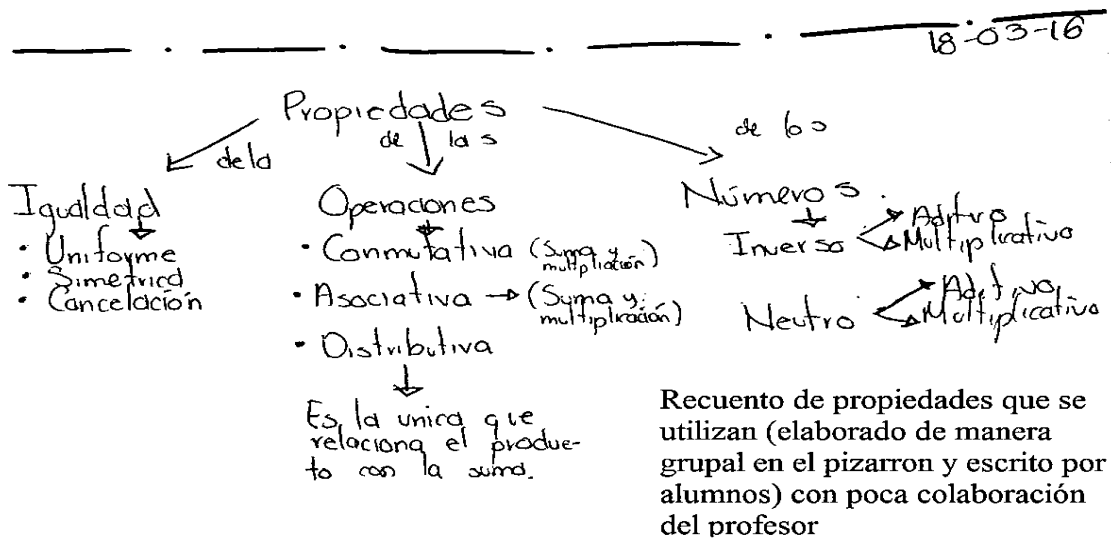 18-03-16
Propiedades
de la
de las
de los
Igualdad
• Uniforme
• Simetrica
• Cancelación
Operaciones
• Conmutativa (Suma y
multipliación)
• Asociativa → (Suma y
multiplicación)
• Distributiva
Es la unica que
relaciona el produc-
to con la suma.
Números.
Inverso
Aditivo
Multiplicativo
Neutro
Aditivo
Multiplicativo
Recuento de propiedades que se
utilizan (elaborado de manera
grupal en el pizarron y escrito por
alumnos) con poca colaboración
del profesor